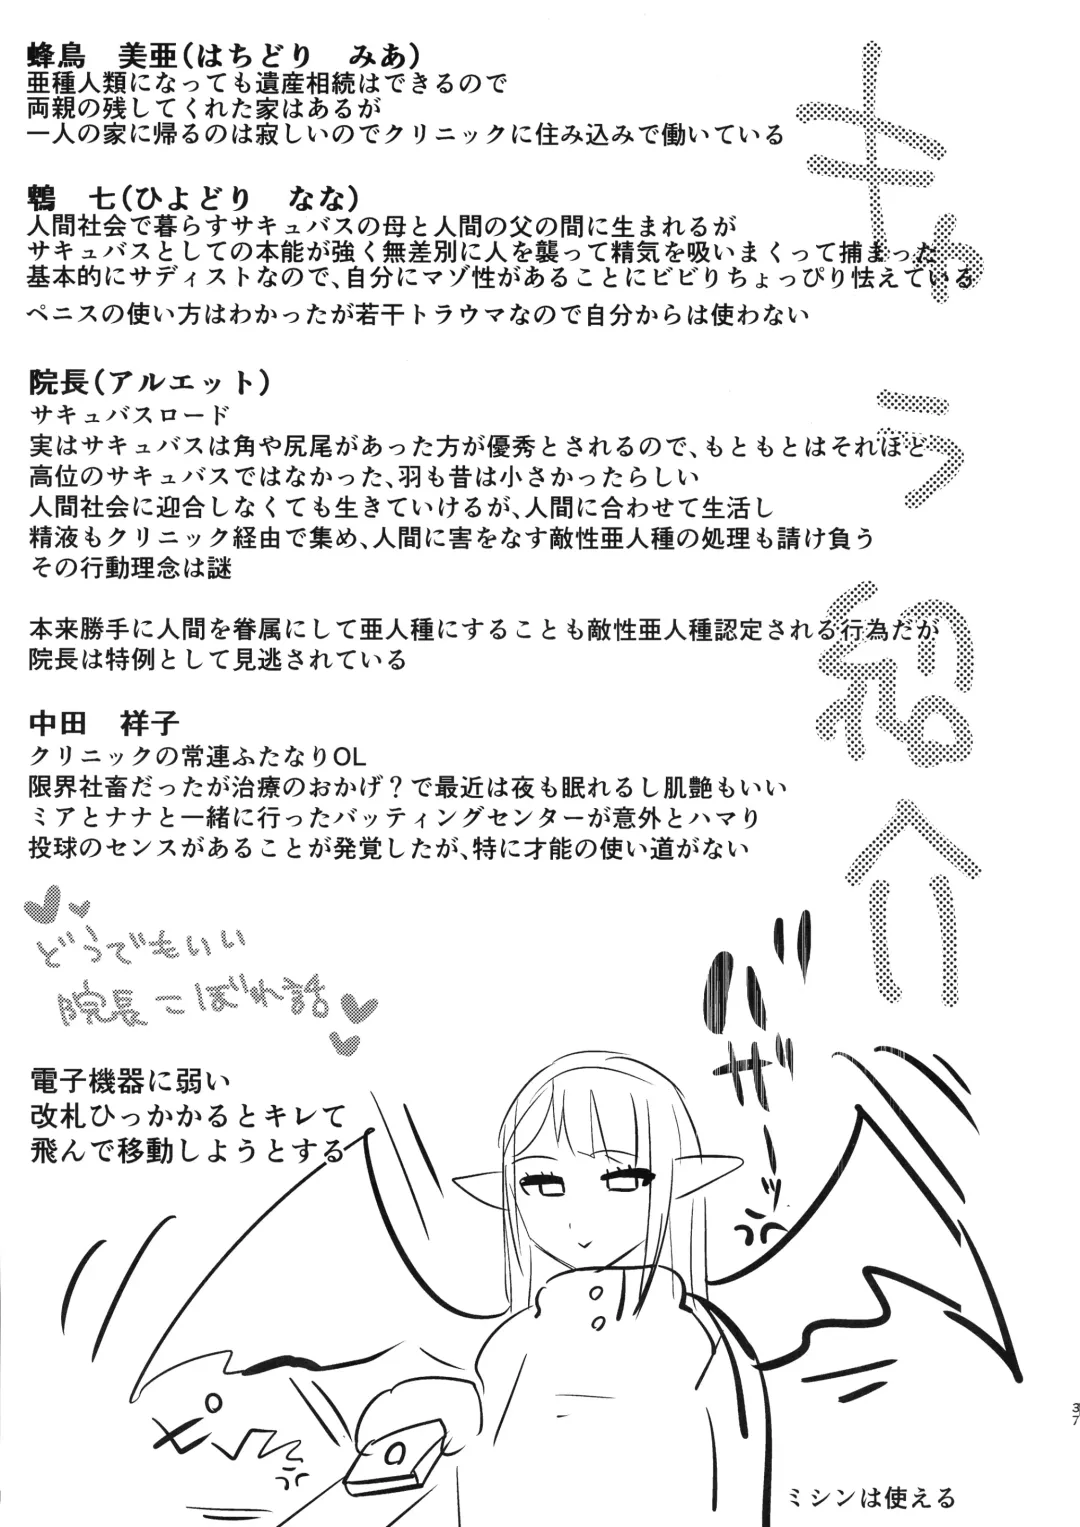 キャラ紹介
蜂鳥　美亜(はちどり　みあ)
亜種人類になっても遺産相続はできるので
両親の残してくれた家はあるが
一人の家に帰るのは寂しいのでクリニックに住み込みで働いている
鵯　七(ひよどり　なな)
人間社会で暮らすサキュバスの母と人間の父の間に生まれるが
サキュバスとしての本能が強く無差別に人を襲って精気を吸いまくって捕まった
基本的にサディストなので、自分にマゾ性があることにビビりちょっぴり怯えている
ペニスの使い方はわかったが若干トラウマなので自分からは使わない
院長(アルエット)
サキュバスロード
実はサキュバスは角や尻尾があった方が優秀とされるので、もともとはそれほど
高位のサキュバスではなかった、羽も昔は小さかったらしい
人間社会に迎合しなくても生きていけるが、人間に合わせて生活し
精液もクリニック経由で集め、人間に害をなす敵性亜人種の処理も請け負う
その行動理念は謎
本来勝手に人間を眷属にして亜人種にすることも敵性亜人種認定される行為だが
院長は特例として見逃されている
中田　祥子
クリニックの常連ふたなりOL
限界社畜だったが治療のおかげ？で最近は夜も眠れるし肌艶もいい
ミアとナナと一緒に行ったバッティングセンターが意外とハマり
投球のセンスがあることが発覚したが、特に才能の使い道がない
どうでもいい
院長こぼれ話
電子機器に弱い
改札ひっかかるとキレて
飛んで移動しようとする
バサーッ
ミシンは使える
37